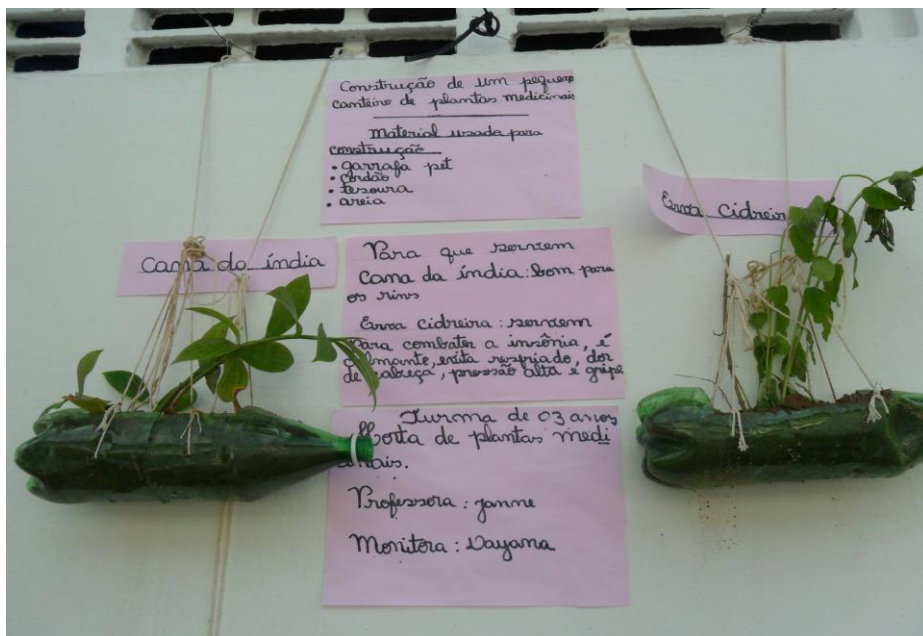 Construção de um pequeno
canteiro de plantas medicinais
Material usado para
construção
• garrafa pet
• cordão
• tesoura
• areia
Cana da índia
Erva Cidreir
Para que servem
Cana da índia: bom para
os rins
Erva Cidreira: servem
para combater a insônia, é
calmante, evita resfriado, dor
de cabeça, pressão alta e gripe
Turma de 03 anos
Horta de plantas medi
cinais.
Professora: Janne
Monitora: Dayana